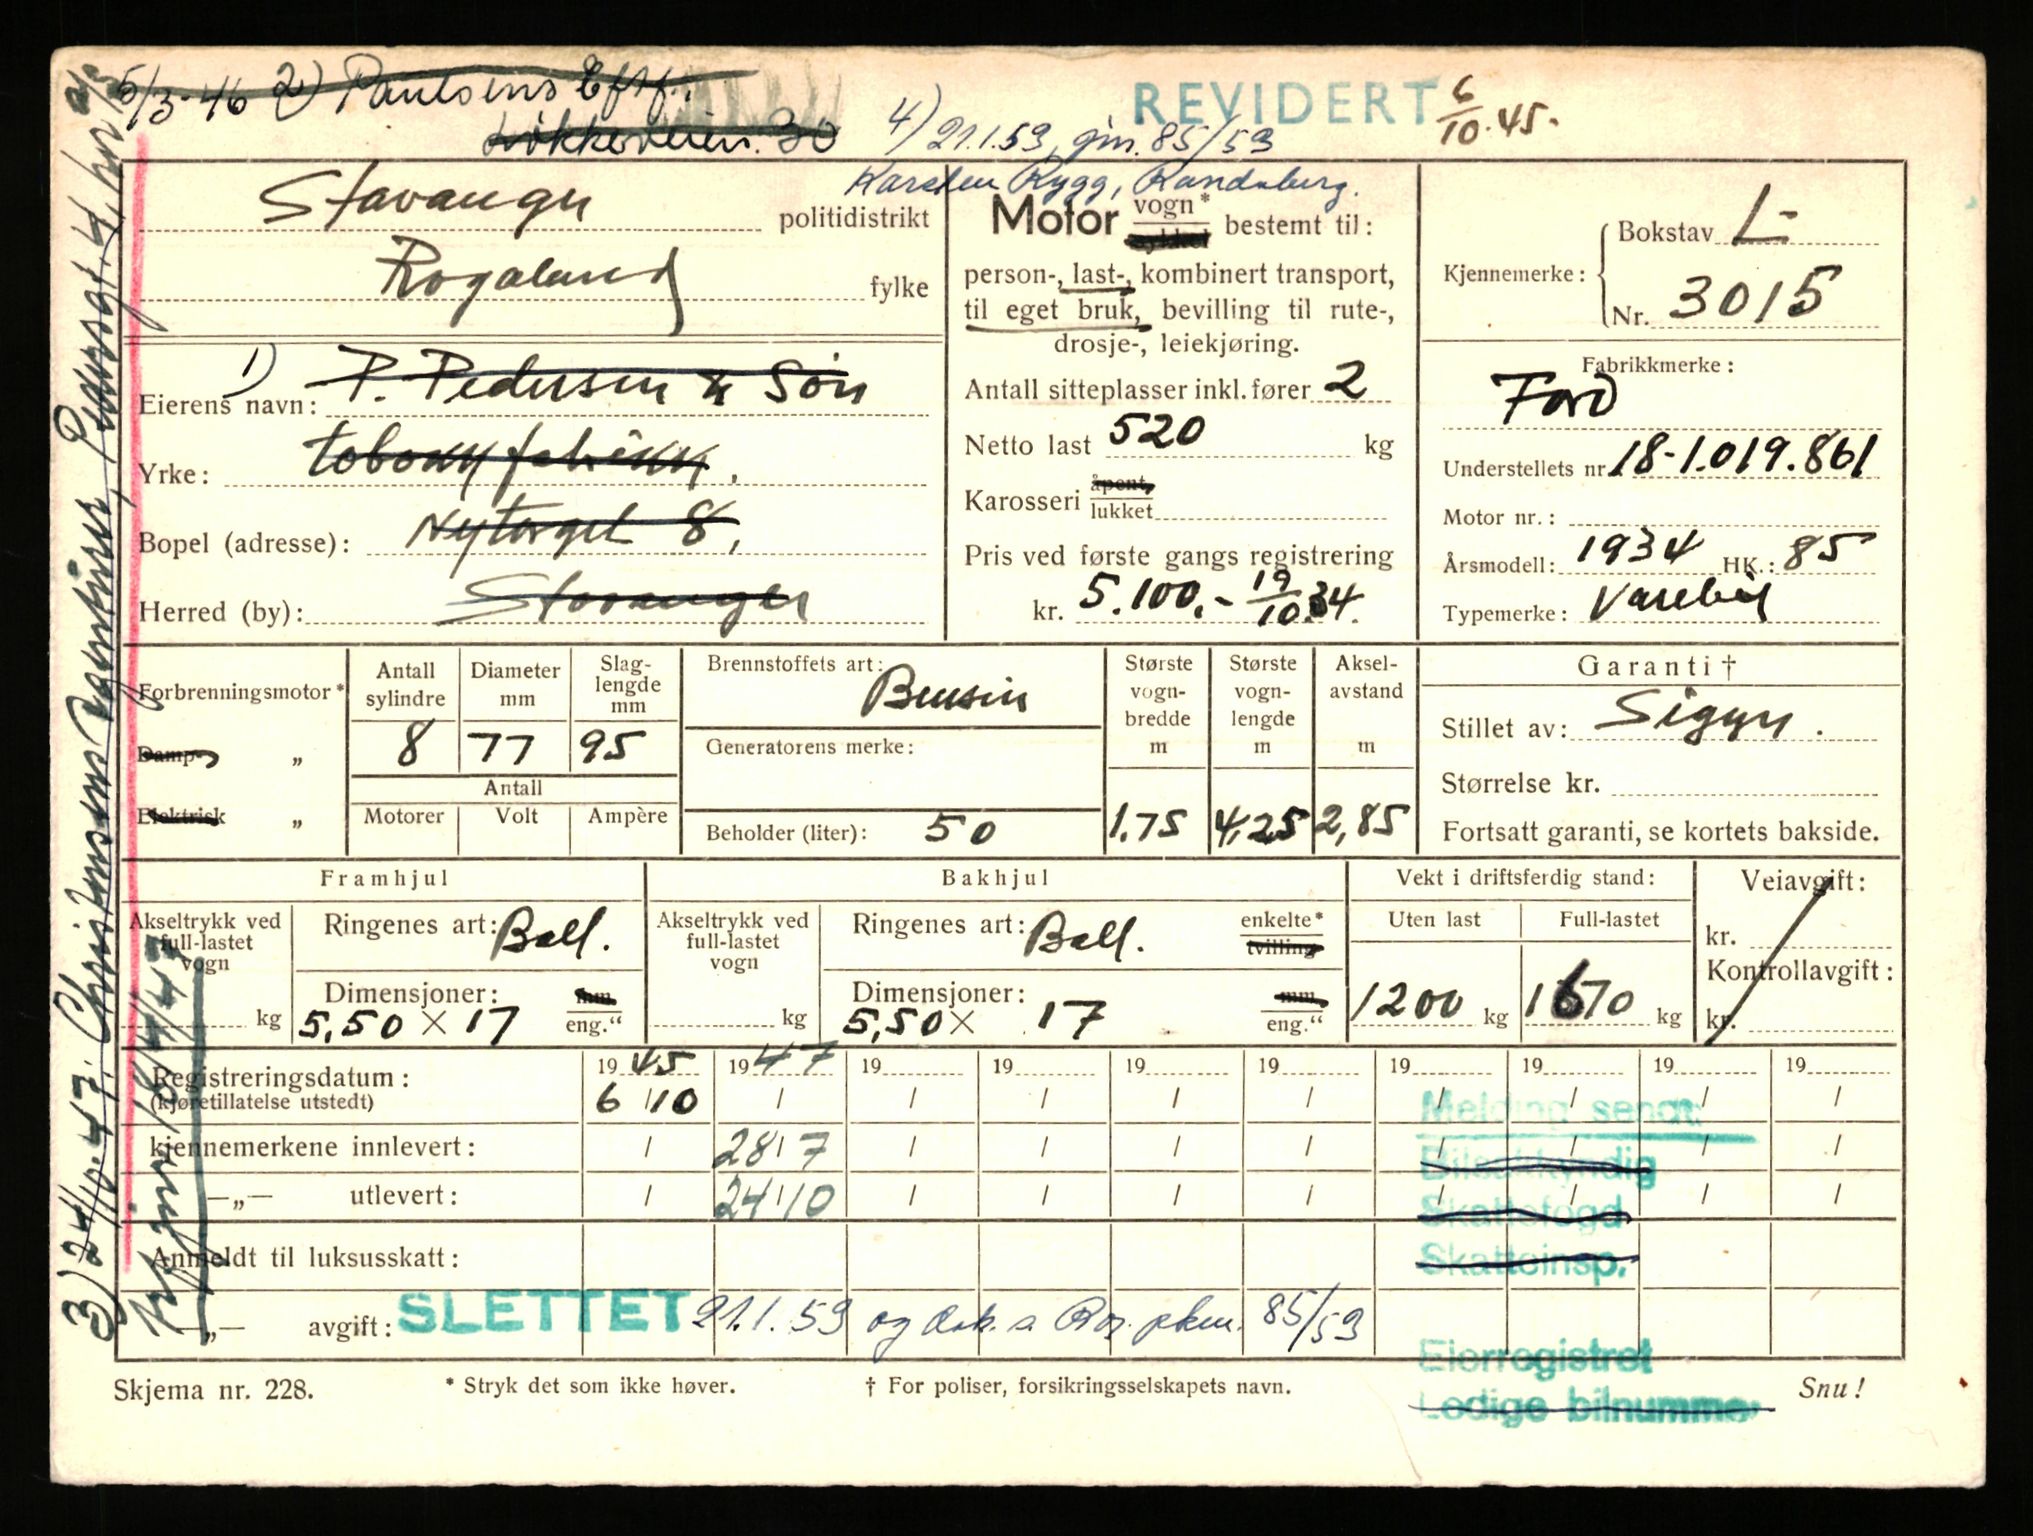 5/3-46 2) Paulsens Eftf.
Løkkeveien 30
REVIDERT 6/10.45.
4) 21.1.53, gjn. 85/53
Karsten Rygg, Randaberg.
Stavanger politidistrikt
Rogaland fylke
1)
Eierens navn: P. Pedersen & Søn
Yrke: tobakkfabrikk.
Bopel (adresse): Nytorget 8,
Herred (by): Stavanger
Motor vogn*
sykkel bestemt til:
person-, last-, kombinert transport,
til eget bruk, bevilling til rute-,
drosje-, leiekjøring.
Antall sitteplasser inkl. fører 2
Netto last 520 kg
Karosseri åpent,
lukket
Pris ved første gangs registrering
kr. 5.100,- 19/10.34.
Kjennemerke: Bokstav L-
Nr. 3015
Fabrikkmerke:
Ford
Understellets nr. 18-1.019.861
Motor nr.:
Årsmodell: 1934 HK.: 85
Typemerke: Varebil
Forbrenningsmotor*
Damp- „
Elektrisk „
Antall sylindre 8
Diameter mm 77
Slag-lengde mm 95
Antall
Motorer Volt Ampère
Brennstoffets art: Bensin
Generatorens merke:
Beholder (liter): 50
Største vogn-bredde m 1.75
Største vogn-lengde m 4,25
Aksel-avstand m 2,85
Garanti †
Stillet av: Sigyn.
Størrelse kr.
Fortsatt garanti, se kortets bakside.
Framhjul
Akseltrykk ved full-lastet vogn kg
Ringenes art: Ball.
Dimensjoner: mm
5,50 × 17 eng."
Bakhjul
Akseltrykk ved full-lastet vogn kg
Ringenes art: Ball. enkelte* tvilling
Dimensjoner: mm
5,50 × 17 eng."
Vekt i driftsferdig stand:
Uten last 1200 kg
Full-lastet 1670 kg
Veiavgift:
kr.
Kontrollavgift:
kr.
Registreringsdatum: 1945 1947 19 19 19 19 19 19 19 19
(kjøretillatelse utstedt) 6/10 / / / / / / / / /
kjennemerkene innlevert: / 28/7 / / / / / / / /
—„— utlevert: / 24/10 / / / / / / / /
Anmeldt til luksusskatt:
—„— avgift: SLETTET 21.1.53 og 85/53
Melding sendt:
Bilsakkyndig
Skattefogd
Skatteinsp.
Eierregistret
Ledige bilnummer
Skjema nr. 228.
* Stryk det som ikke høver.
† For poliser, forsikringsselskapets navn.
Snu!
3) 24/10.47: Christensens Agentur, Pedersgt. 4,